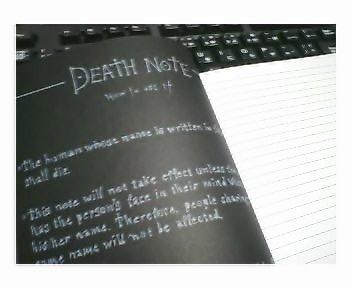 DEATH NOTE
How to use it
•The human whose name is written in
shall die.
•This note will not take effect unless the
has the person's face in their mind when
his/her name. Therefore, people sharing
same name will not be affected.